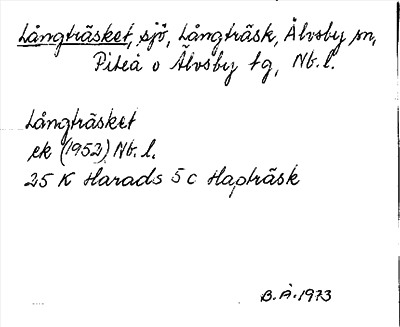 Långträsket, sjö, Långträsk, Älvsby sn,
Piteå o Älvsby tg, Nb. l.
Långträsket
ek (1952) Nb. l.
25 K Harads 5 c Hapträsk
B. Å. 1973